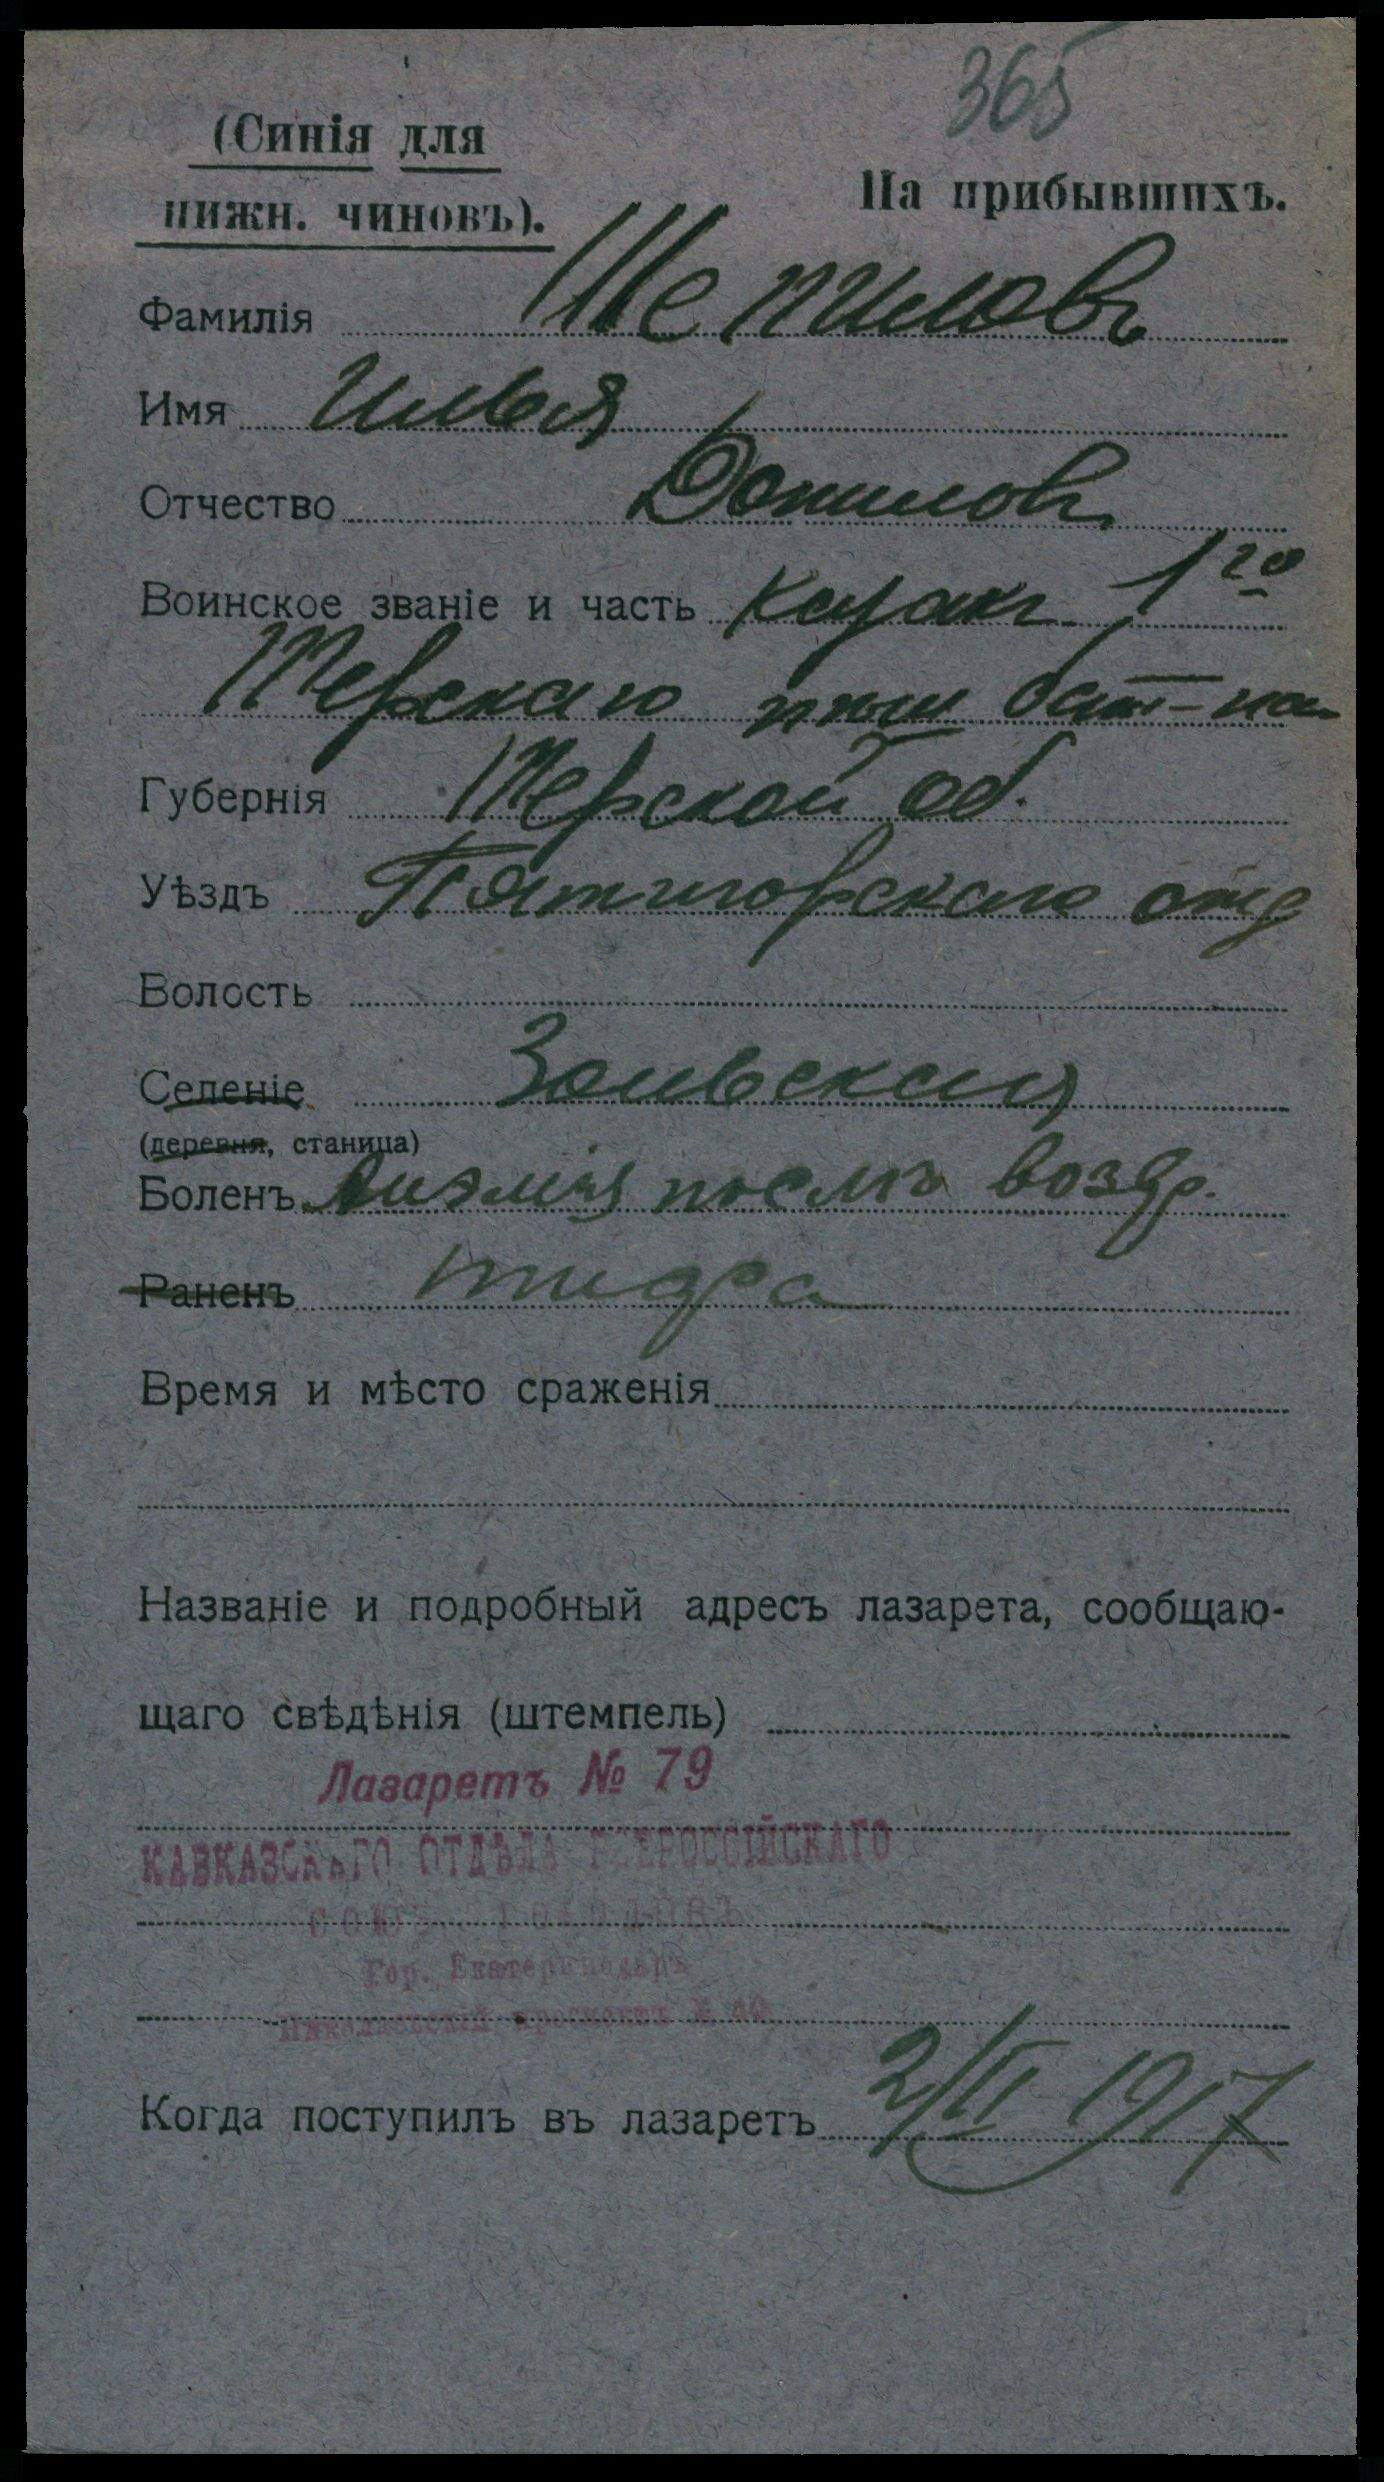 365
(Синія для
нижн. чиновъ).
На прибывшихъ.
Фамилія Шепиловъ
Имя Илья
Отчество Данилов.
Воинское званіе и часть казакъ 1го
Терскаго плаш бат-на
Губернія Терской об.
Уѣздъ Пятигорскаго отд
Волость
Селеніе Зольская
(деревня, станица)
Боленъ Анэмія послѣ возвр.
Раненъ тифа
Время и мѣсто сраженія
Названіе и подробный адресъ лазарета, сообщаю-
щаго свѣдѣнія (штемпель)
Лазаретъ № 79
КАВКАЗСКАГО ОТДѢЛА ВСЕРОССІЙСКАГО
СОЮЗА ГОРОДОВЪ
Гор. Екатеринодаръ
Николаевскій проспектъ №
Когда поступилъ въ лазаретъ 2/II 1917